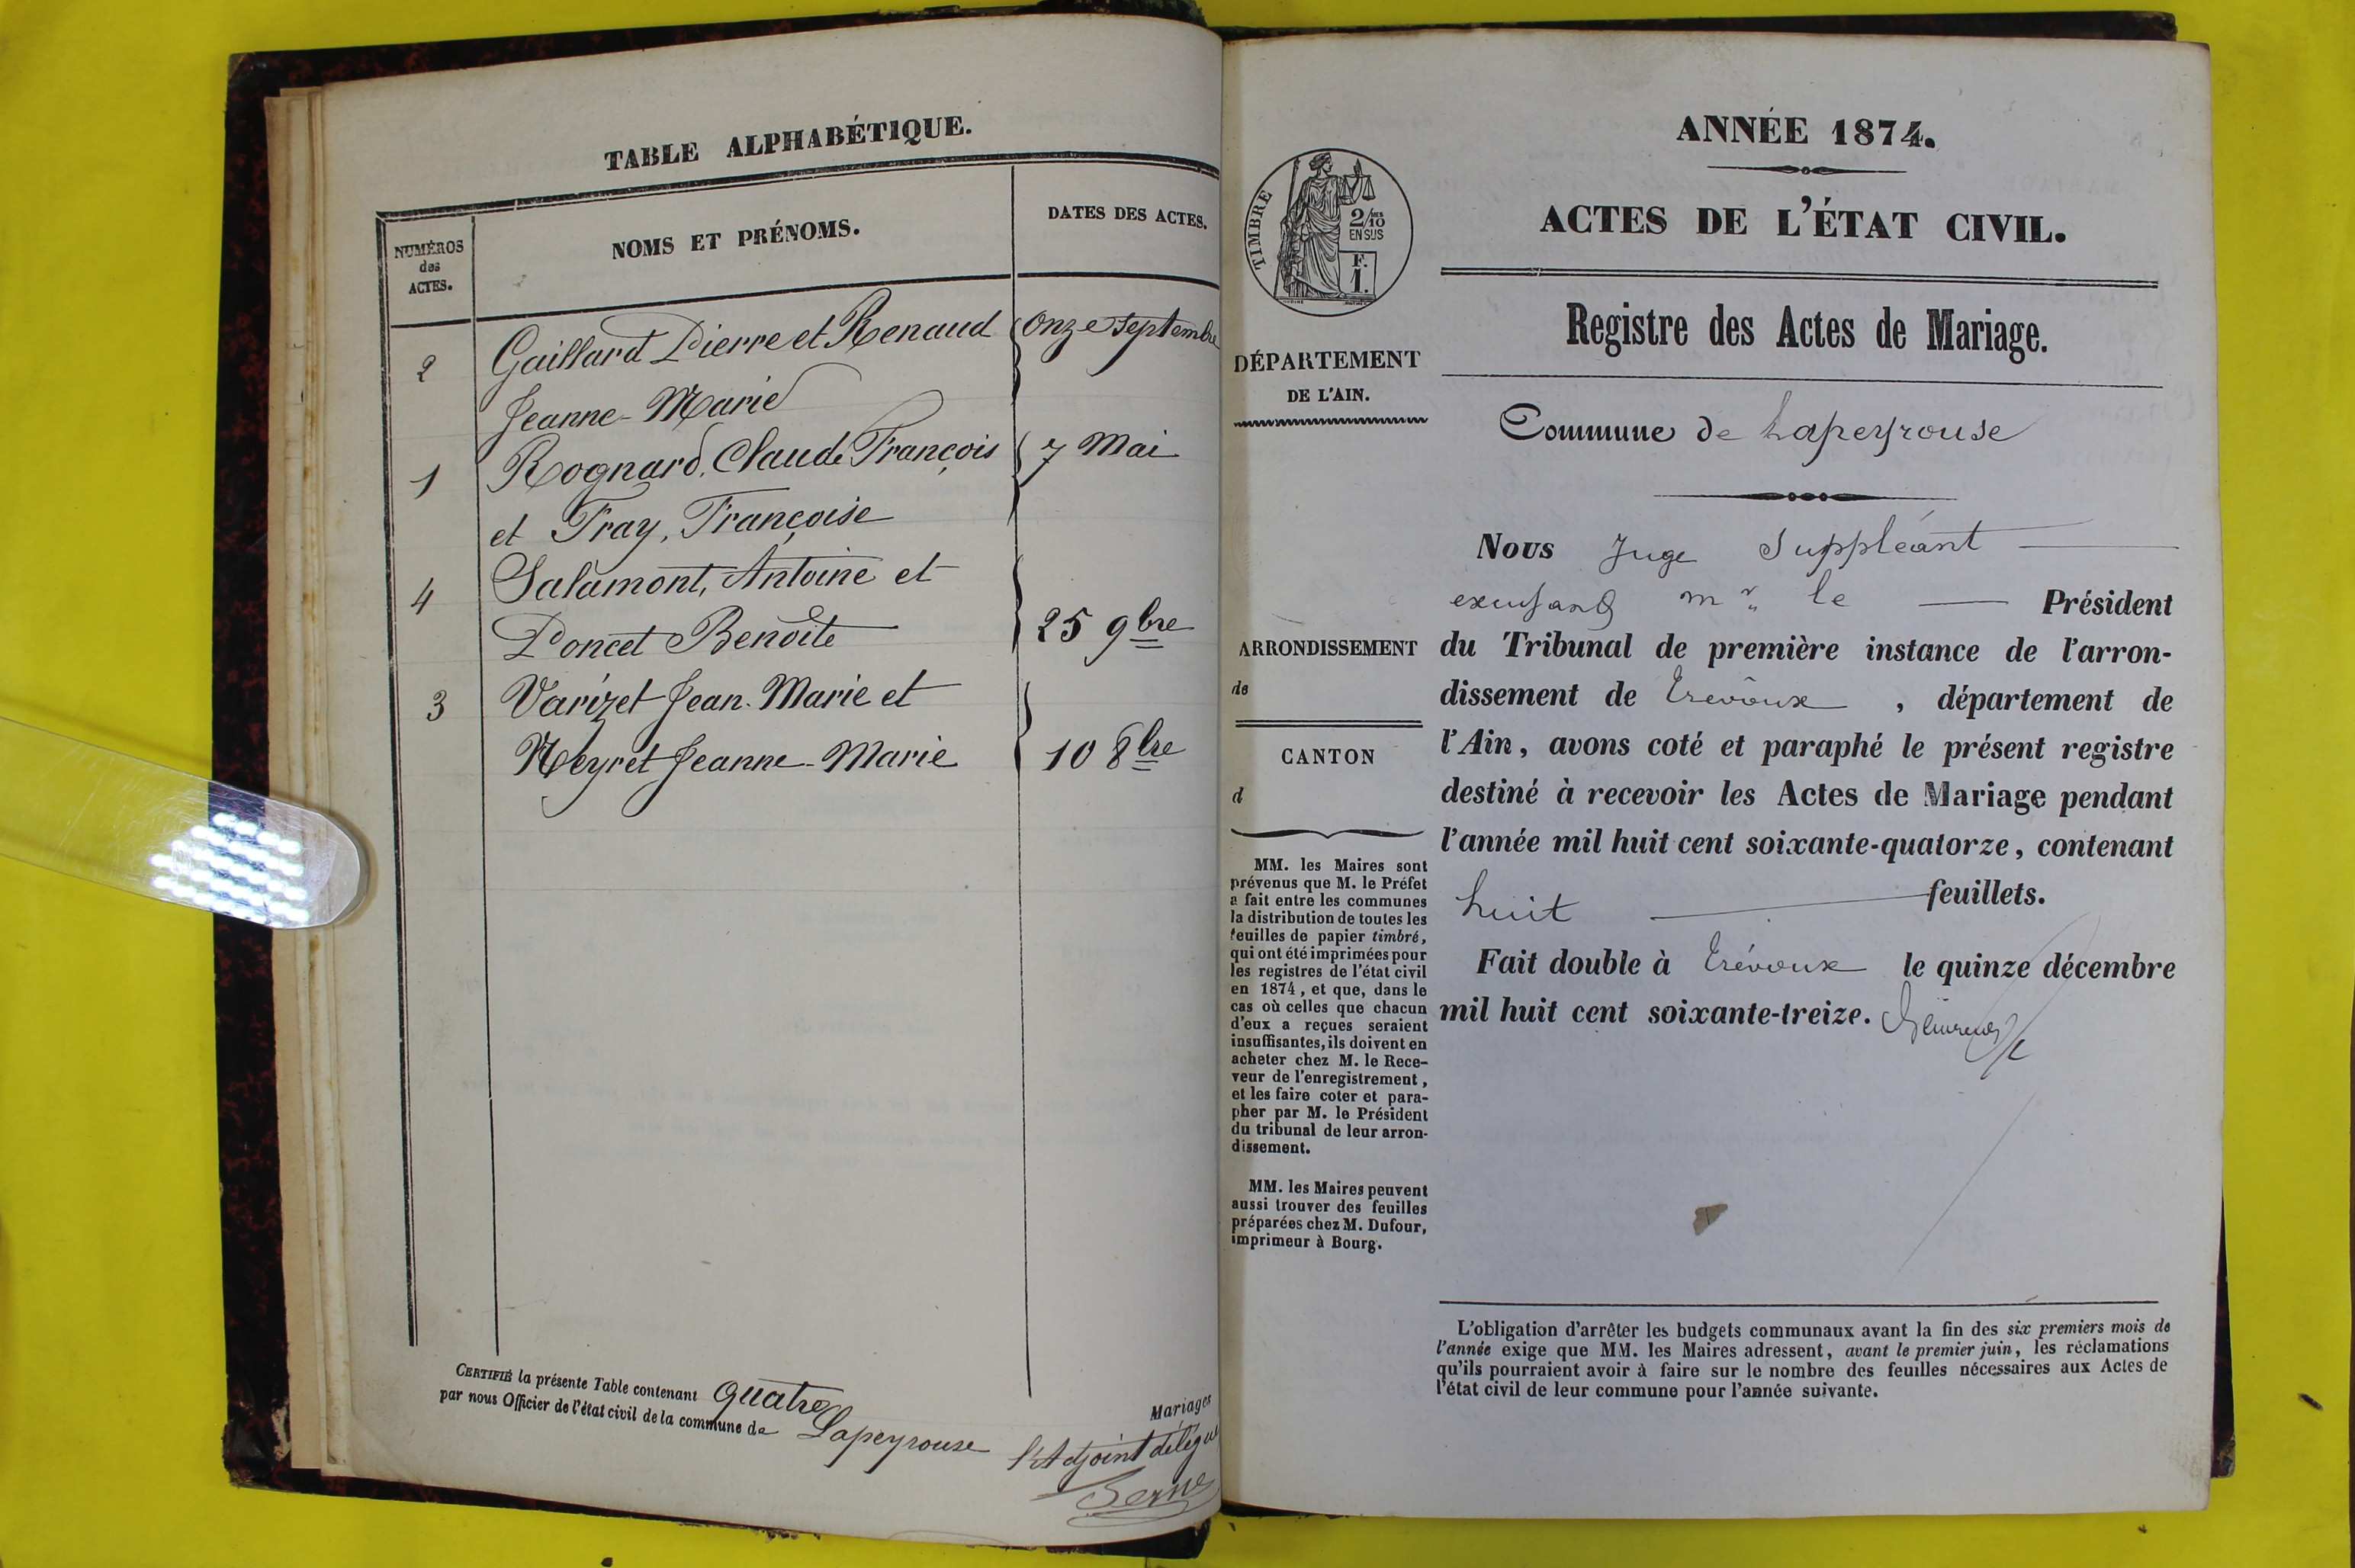 TABLE ALPHABÉTIQUE.
NUMÉROS
des
ACTES.
NOMS ET PRÉNOMS.
DATES DES ACTES.
2 Gaillard Pierre et Renaud Onze septembre
Jeanne-Marie
1 Rognard, Claude François 7 Mai
et Fray, Françoise
4 Salamont, Antoine et
Poncet Benoite 25 9bre
3 Varizet Jean-Marie et
Neyret Jeanne-Marie 10 8bre
CERTIFIÉ la présente Table contenant quatre Mariages
par nous Officier de l'état civil de la commune de Lapeyrouse
l'Adjoint délégué
ANNÉE 1874.
ACTES DE L'ÉTAT CIVIL.
Registre des Actes de Mariage.
TIMBRE
2/10
EN SUS
F.
1.
DÉPARTEMENT
DE L'AIN.
Commune de Lapeyrouse
Nous Juge Suppléant
mr le Président
ARRONDISSEMENT
de
CANTON
d
du Tribunal de première instance de l'arron-
dissement de Trévoux, département de
l'Ain, avons coté et paraphé le présent registre
destiné à recevoir les Actes de Mariage pendant
l'année mil huit cent soixante-quatorze, contenant
huit feuillets.
Fait double à Trévoux le quinze décembre
mil huit cent soixante-treize.
MM. les Maires sont
prévenus que M. le Préfet
a fait entre les communes
la distribution de toutes les
feuilles de papier timbré,
qui ont été imprimées pour
les registres de l'état civil
en 1874, et que, dans le
cas où celles que chacun
d'eux a reçues seraient
insuffisantes, ils doivent en
acheter chez M. le Rece-
veur de l'enregistrement,
et les faire coter et para-
pher par M. le Président
du tribunal de leur arron-
dissement.
MM. les Maires peuvent
aussi trouver des feuilles
préparées chez M. Dufour,
imprimeur à Bourg.
L'obligation d'arrêter les budgets communaux avant la fin des six premiers mois de
l'année exige que MM. les Maires adressent, avant le premier juin, les réclamations
qu'ils pourraient avoir à faire sur le nombre des feuilles nécessaires aux Actes de
l'état civil de leur commune pour l'année suivante.